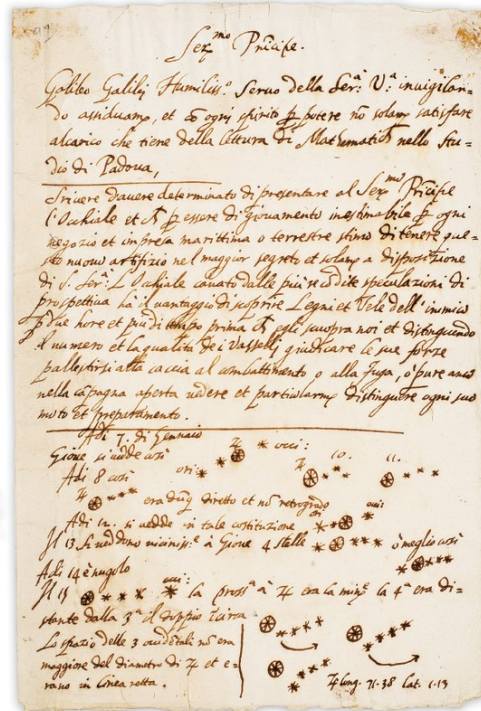 Ser.mo Prīcipe.
Galileo Galilej Humiliss.o Servo della Ser.a V.a invigilan=
do assiduam.e, et cō ogni spirito p potere nō solam.e satisfare
alcarico che tiene della lettura di Mathematich nello Stu=
dio di Padova,
Scrivere d'avere determinato di presentare al Ser.mo Prīcipe
l'Occhiale et p essere di giovamento inestimabile p ogni
negozio et impresa marittima o terrestre stimo di tenere que=
sto nuovo artifizio nel maggior segreto et solam.e a disposizione
di S. Ser.a L'Occhiale cavato dalle più recōdite speculazioni di
prospettiva hà il vantaggio di scoprire Legni et Vele dell'inimico
p due hore et più di tempo prima ch egli scuopra noi et distinguendo
il numero et la qualità dei Vasselli giudicare le sue forze
pallestirsi alla caccia al combattimento o alla fuga, ò pure anco
nella cāpagna aperta vedere et particolarm.e distinguere ogni suo
moto et preparamento.
Adi 7. di Gennaio
Gioue si vedde così occi:
Adi 8 così ori: 10. 11.
era dūq diretto et nō retrogrado
Adi 12. si vedde in tale costituzione ori occi:
Il 13 si veddono vicinis.e à Gioue 4 stelle ò meglio così
Adi 14 è nugolo
Il 15 occi: la pross.a à era la min.e la 4.a era di=
stante dalla 3.a il doppio circa
Lo spazio delle 3 occidētali nō era
maggiore del diametro di et e=
rano in linea retta. long. 71.38 lat. 1.13